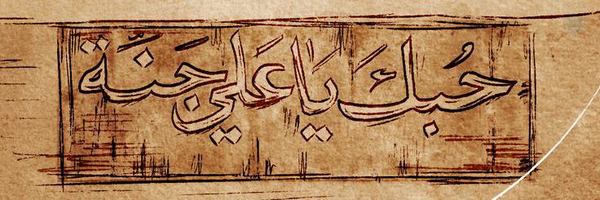 حُبك يَا عَلي جَنَّة